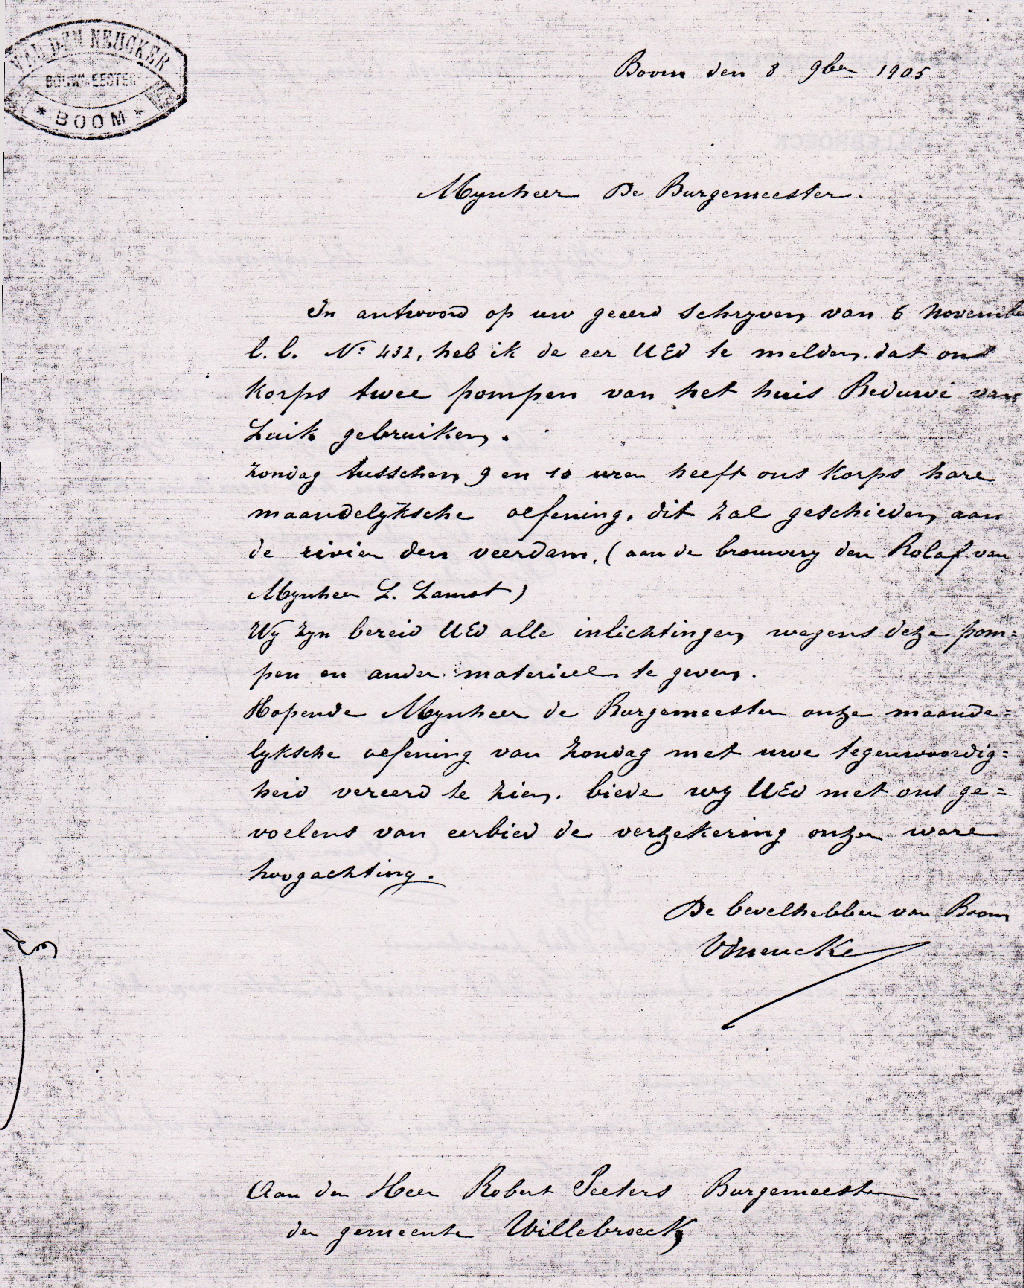 VAN DEN NEUCKER
BOUWMEESTER
* BOOM *
Boom den 8 9ber 1905
Mynheer De Burgemeester.
In antwoord op uw geeerd schryven van 6 November
l.l. No 432, heb ik de eer UEd te melden dat ons
korps twee pompen van het huis Beduwé van
Luik gebruiken.
Zondag tusschen 9 en 10 uren heeft ons korps hare
maandelyksche oefening, dit zal geschieden aan
de rivier den veerdam, (aan de brouwery den Rolaf van
Mynheer L. Lamot)
Wy zyn bereid UEd alle inlichtingen wegens deze pom=
pen en ander materieel te geven.
Hopende Mynheer de Burgemeester onze maande=
lyksche oefening van Zondag met uwe tegenwoordig=
heid vereerd te zien, biede wy UEd met ons ge=
voelens van eerbied de verzekering onzer ware
hoogachting.
De bevelhebber van Boom
VDneucker
Aan den Heer Robert Peeters Burgemeester
der gemeente Willebroeck